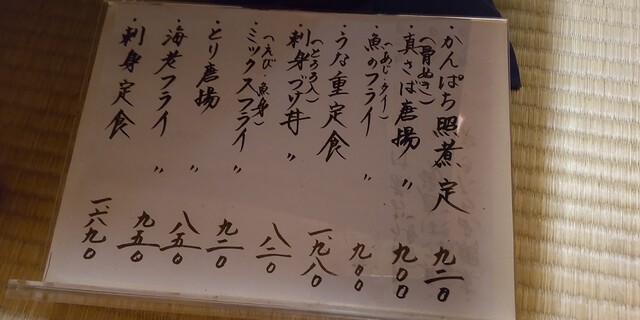 ・かんぱち照煮定 九二〇
(骨ぬき)
・真さば唐揚 〃 九〇〇
(あじ・タイ)
・魚のフライ 〃 九〇〇
・うな重定食 一、九八〇
(とろろ入)
・刺身づけ丼 〃 八二〇
(えび・魚身)
・ミックスフライ 〃 九二〇
・とり唐揚 〃 八五〇
・海老フライ 〃 九五〇
・刺身定食 一、六九〇